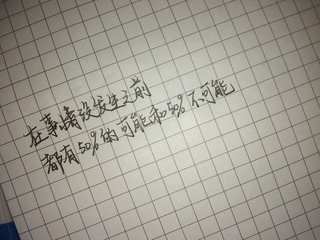 在事情没发生之前
都有50%的可能和50%不可能